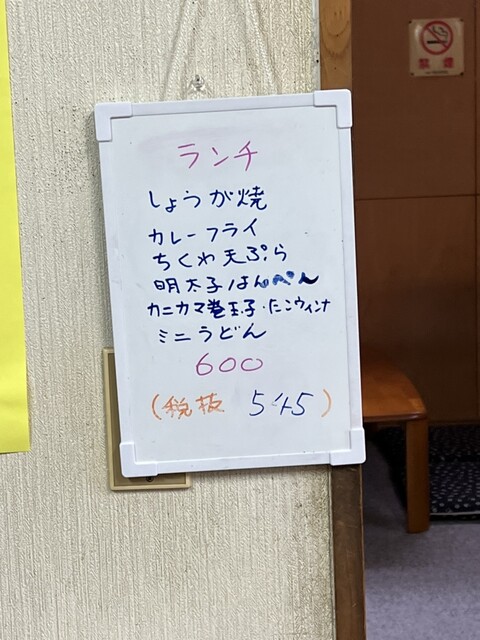 禁煙
ランチ
しょうが焼
カレーフライ
ちくわ天ぷら
明太子はんぺん
カニカマ巻玉子・たこウィンナ
ミニうどん
600
(税抜 545)